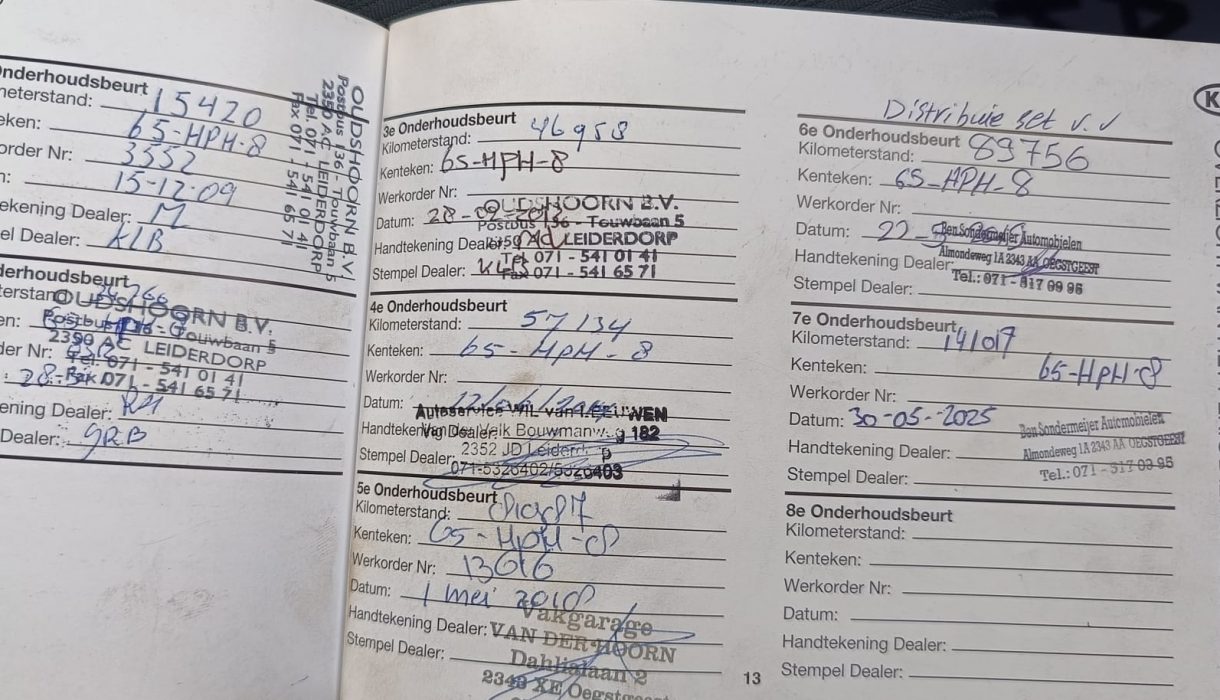 Onderhoudsbeurt
meterstand: 15420
eken: 65-HPH-8
order Nr: 3552
n: 15-12-09
ekening Dealer: M
el Dealer: KLB
OUDSHOORN B.V.
Postbus 136 - Touwbaan 5
2350 AC LEIDERDORP
Tel. 071 - 541 01 41
Fax 071 - 541 65 71
derhoudsbeurt
terstand
OUDSHOORN B.V.
en: Postbus 136 - Touwbaan 5
2350 AC LEIDERDORP
der Nr:
Tel. 071 - 541 01 41
: 28-
Fax 071 - 541 65 71
ening Dealer: RM
Dealer: GRB
3e Onderhoudsbeurt
Kilometerstand: 46958
Kenteken: 65-HPH-8
Werkorder Nr:
OUDSHOORN B.V.
Datum: 28-02-2012
Postbus 136 - Touwbaan 5
Handtekening Dealer:
2350 AC LEIDERDORP
Tel. 071 - 541 01 41
Stempel Dealer:
Fax 071 - 541 65 71
4e Onderhoudsbeurt
Kilometerstand: 57134
Kenteken: 65-HPH-8
Werkorder Nr:
Datum: 12/06/
Autoservice Wil van LEEUWEN
Handtekening Dealer:
Bouwmanweg 182
2352 JD Leiderdorp
Stempel Dealer:
071-5320402/5320403
5e Onderhoudsbeurt
Kilometerstand:
Kenteken: 65-HPH-8
Werkorder Nr: 13616
Datum: 1 mei 2018
Vakgarage
Handtekening Dealer:
VAN DER HOORN
Stempel Dealer:
Dahlialaan 2
2343 XE Oegstgeest
Distributie set v.v
6e Onderhoudsbeurt
Kilometerstand: 89756
Kenteken: 65-HPH-8
Werkorder Nr:
Datum: 22
Ben Sondermeijer Automobielen
Handtekening Dealer:
Almondeweg 1A 2343 AA OEGSTGEEST
Tel.: 071 - 517 09 95
Stempel Dealer:
7e Onderhoudsbeurt
Kilometerstand: 141017
Kenteken: 65-HPH-8
Werkorder Nr:
Datum: 30-05-2025
Ben Sondermeijer Automobielen
Handtekening Dealer:
Almondeweg 1A 2343 AA OEGSTGEEST
Tel.: 071 - 517 09 95
Stempel Dealer:
8e Onderhoudsbeurt
Kilometerstand:
Kenteken:
Werkorder Nr:
Datum:
Handtekening Dealer:
Stempel Dealer:
13
K